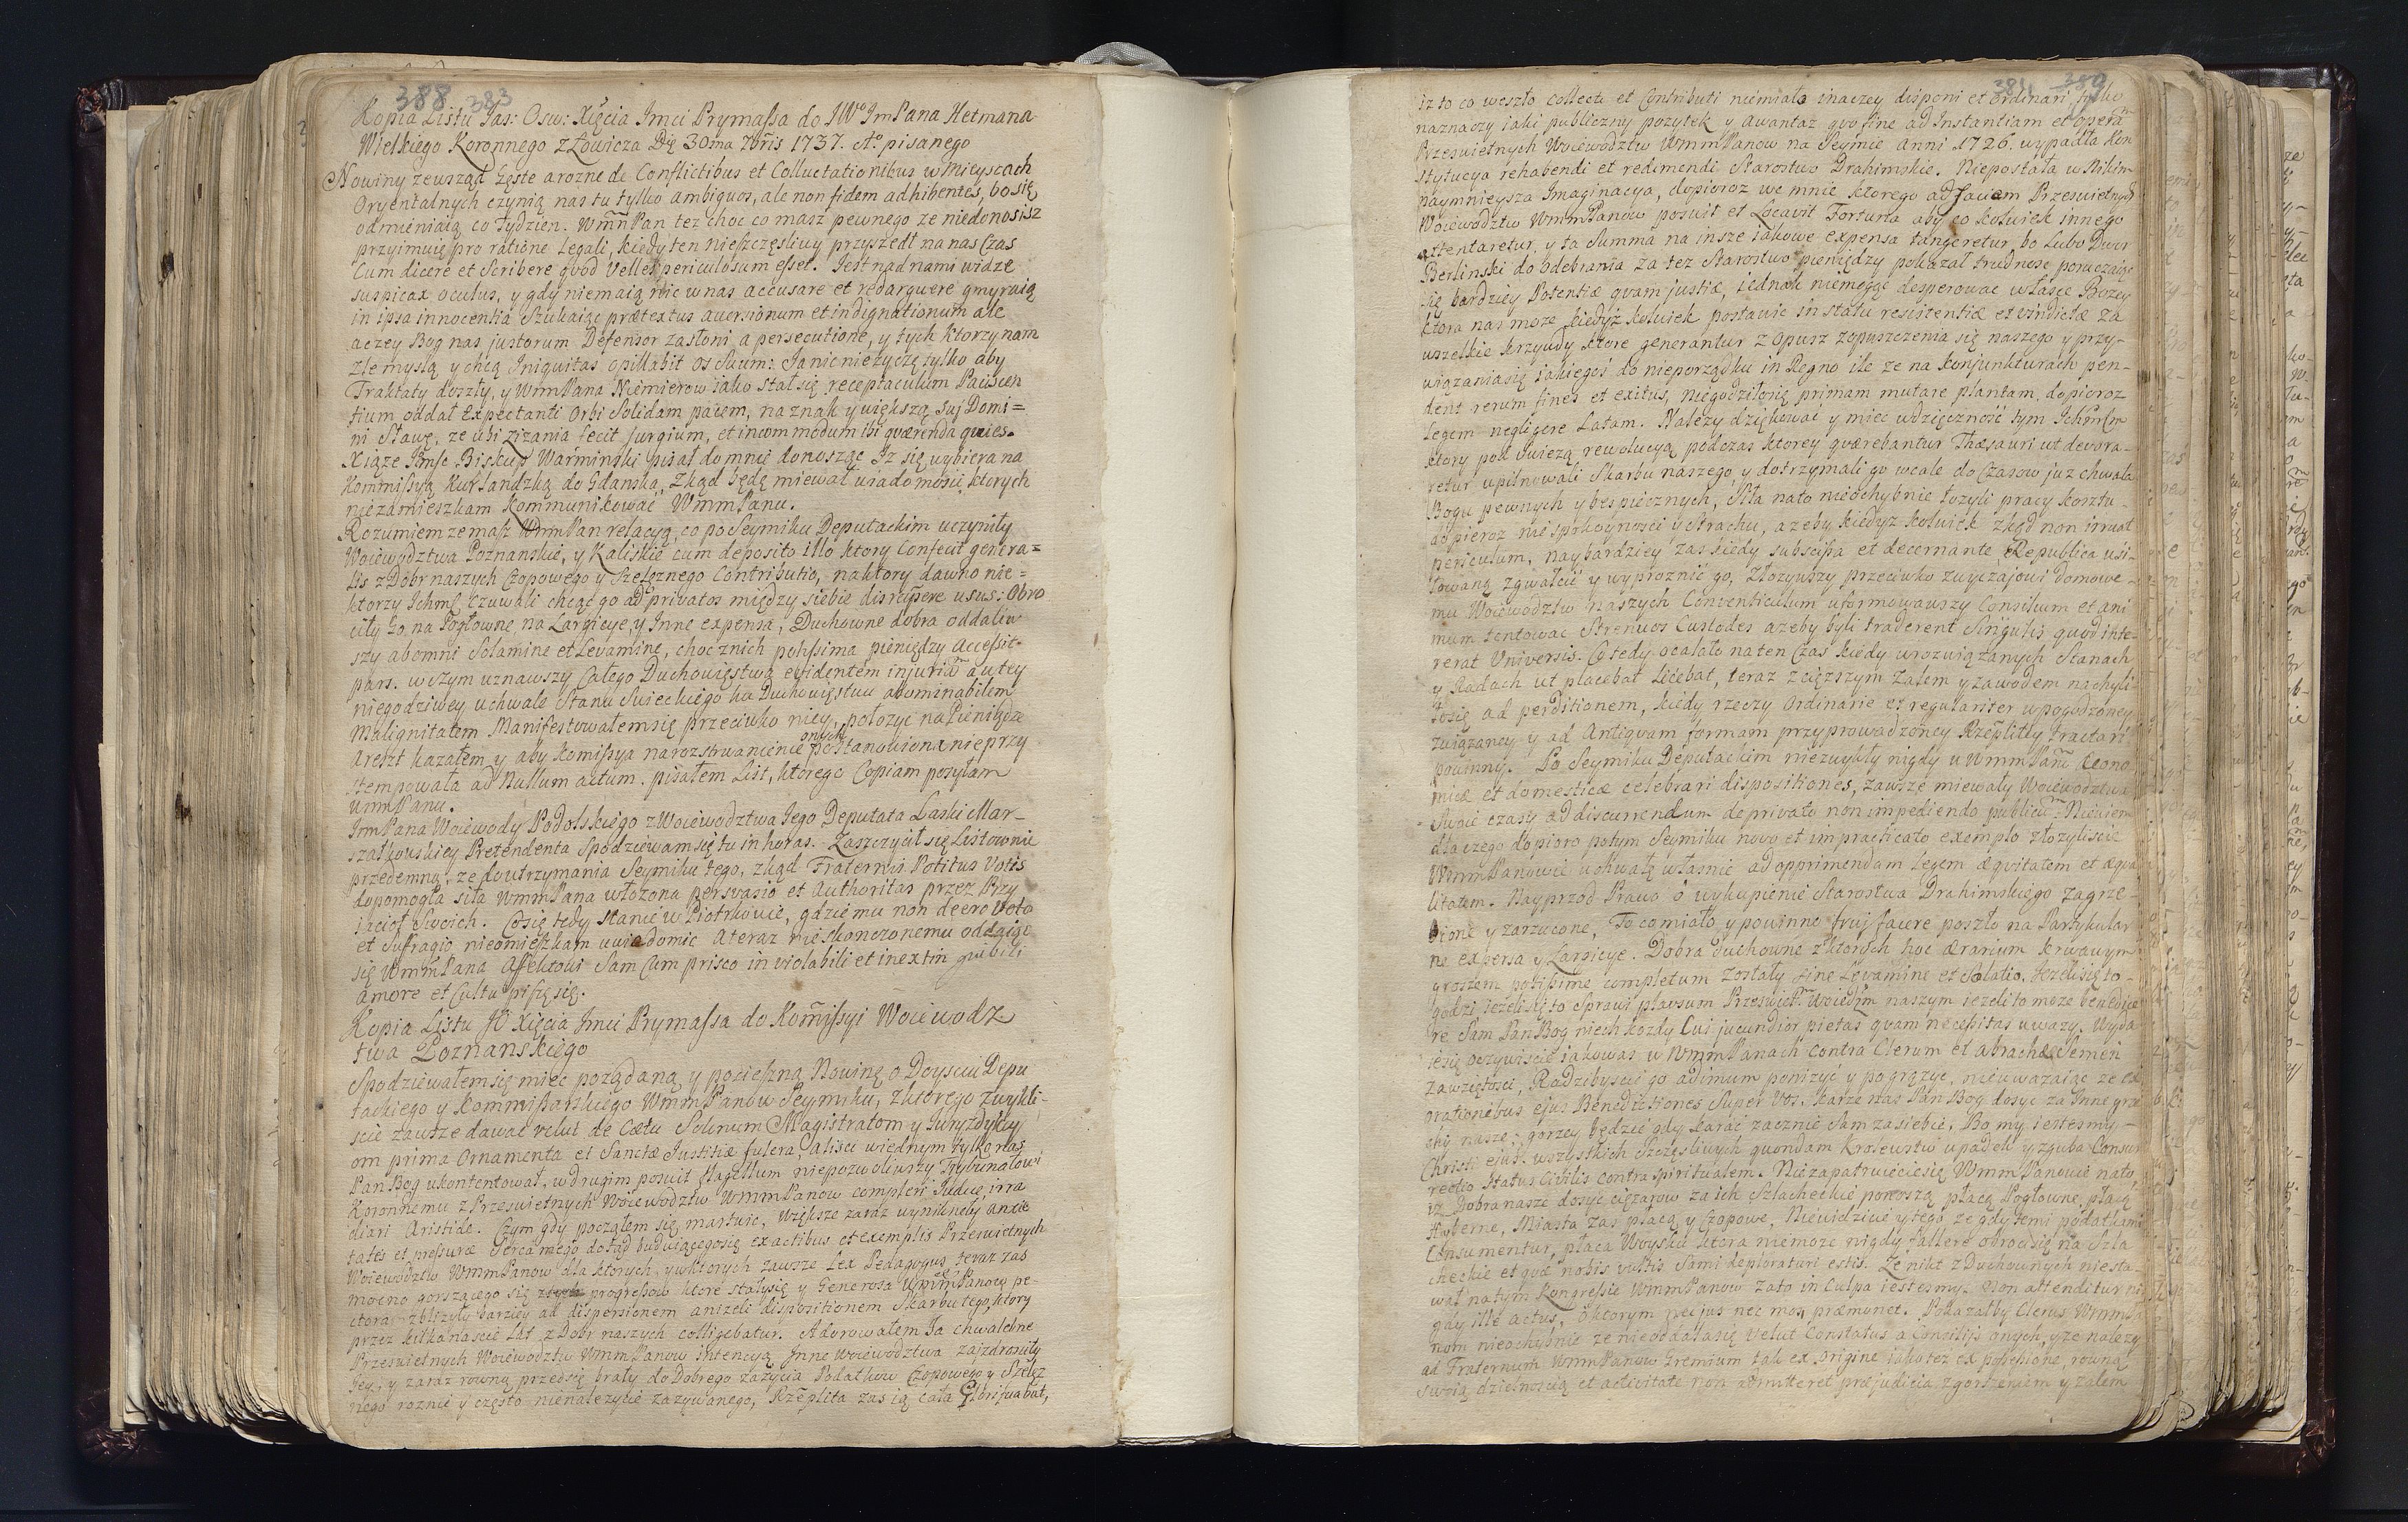 388 383
Kopia Listu Jas: Osw: Xięcia Imci Prymassa do JWo ImPana Hetmana
Wielkiego Koronnego z Łowicza Die 30ma 7bris 1737. Ao pisanego
Nowiny zewsząd częste a rozne de Conflictibus et Colluctationibus w mieyscach
Oryentalnych czynią nas tu tylko ambiguos, ale non fidem adhibentes, bo się
odmieniaią co Tydzien. Wmm Pan tez choc co masz pewnego ze niedonosisz
przyimuię pro ratione Legali, kiedy ten nieszczęsliwy przyszedł na nas Czas
Cum dicere et Scribere qvod Velles periculosum esset. Jest nad nami widzę
suspicax oculus, y gdy niemaią nic w nas accusare et redarguere gmyraią
in ipsa innocentia Szukaiąc prætextus aversionum et indignationum ale
aczey Bog nas justorum Defensor zasłoni a persecutione, y tych ktorzy nam
zle myslą y chcą Iniquitas opillabit os Suum: Ja nic nie zyczę tylko aby
Traktaty doszły, y WmmPana Niemierow iako stał się receptaculum Paciscen
tium oddał Expectanti Orbi Solidam pacem, na znak y większą suj Domi=
ni Sławę, ze ubi zizania fecit jurgium, et incommodum ibi qværenda quies.
Xiąze Jmsc Biskup Warminski pisał do mnie donosząc Iz się wybiera na
Kommissyą Kurlandzką do Gdanska, zkąd będę miewał wiadomosci ktorych
niezamieszkam Kommunikować WmmPanu.
Rozumiem ze masz WmmPan relacyą, co po Seymiku Deputackim uczyniły
Woiewodztwa Poznanskie, y Kaliskie cum deposito illo ktory Confecit genera=
lis z Dobr naszych Czopowego y Szelęznego Contributio, na ktory dawno nie=
ktorzy Ichmsc czuwali chcąc go ad privatos między siebie disrapere usus: Obro
ciły go na Pogłowne, na Largicye, y Inne expensa, Duchowne dobra oddaliw
szy ab omni Solamine et Levamine, choc znich potissima pieniędzy Accessit
pars. w czym uznawszy Całego Duchowięstwa evidentem injuriam a w tey
niegodziwey uchwale Stanu Swieckiego ku Duchowięstwu abominabilem
Malignitatem Manifestowałem się przeciwko niey, połozyc na Pieniądze
Areszt kazałem y aby Komissya na rozstrwanienie onych postanowiona nieprzy
stempowała ad Nullum actum. pisałem List, ktorego Copiam posyłam
WmmPanu.
ImPana Woiewody Podolskiego z Woiewodztwa Jego Deputata Laski Mar-
szałkowskiey Pretendenta Spodziewam się tu in horas. Zaszczycił się Listownie
przedemną, ze do utrzymania Seymiku tego, zkąd Fraternis Potitus Votis
dopomogła siła WmmPana włozona persvasio et Authoritas przez Przy
iacioł Swoich. Co się tedy stanie w Piotrkowie, gdzie mu non deero Voto
et Suffragio nieomieszkam uwiadomic A teraz nieskonczonemu oddaiąc
się WmmPana Affektowi Sam Cum prisco inviolabili et inextinguibili
amore et Cultu piszę się.
Kopia Listu JO Xięcia Imci Prymassa do Kommissyi Woiewodz
twa Poznanskiego
Spodziewałem się miec poządaną y pocieszną Nowinę o Doysciu Depu
tackiego y Kommissarskiego WmmPanow Seymiku, z ktorego zwykli-
scie zawsze dawac velut de Cætu Solonum Magistratom y Juryzdykcy
om prima Ornamenta et Sanctæ Justitiæ fulcra, alisci wiednym tylko nas
Pan Bog ukontentował, w drugim posuit flagellum niepozwoliwszy Trybunałowi
Koronnemu z Przeswietnych Woiewodztw WmmPanow compleri Judice, irra
diari Aristide. Czym gdy począłem się martwic, większe zaraz wyniknęły anxie
tates et pressuræ Serca mego dotąd buduiącego się ex actibus et exemplis Przeswietnych
Woiewodztw WmmPanow dla ktorych, y w ktorych zawsze Lex Pedagogus teraz zas
mocno gorszącego się progressow ktore stały się y Generosa WmmPanow pe-
ctora zblizyły barziey ad dispersionem anizeli dispositionem Skarbu tego, ktory
przez kilkanascie Lat z Dobr naszych colligebatur. Adorowałem Ja chwalebne
Przeswietnych Woiewodztw WmmPanow intencyą Inne Woiewodztwa zazdrosciły
Jey, y zaraz rowną przedsię brały do Dobrego zazycia Podatkow Czopowego y Szelęz
nego roznie y często nienalezycie zazywanego, Rzeplita zas ią cała Glorificabat,
384 389
iz to co weszło collecti et Contributi niemiało inaczey disponi et ordinari tylko
naznaczy iaki publiczny pozytek y awantaz qvo fine ad Instantiam et opera
Przeswietnych Woiewodztw WmmPanow na Seymie Anni 1726. wypadła Kon
stytucya rehabendi et redimendi Starostwo Drahimskie. Niepostała w Nikim
naymnieysza Imaginacya, dopioroz we mnie ktorego ad favem Przeswietnych
Woiewodztw WmmPanow posuit et Locavit Fortuna aby co kolwiek innego
attentaretur, y ta Summa na insze iakowe expensa tangeretur, bo Lubo Dwor
Berlinski do odebrania za tez Starostwo pieniędzy pokazał trudnosc poruczaiąc
się bardziey Potentiæ qvam justiæ, iednak niemogąc desperowac w łasce Bozey
ktora nas moze kiedyz kolwiek postawic in statu resistentiæ et vindictæ za
wszelkie krzywdy ktore generantur z opusz zopuszczenia się naszego y przy-
wiązania się iakiegos do nieporządku in Regno ile ze na konjunkturach pen-
dent rerum fines et exitus, niegodziło się primam mutare plantam, dopioroz
Legem negligere Latam. Nalezy dziękowac y miec wdzięczność tym Ichmsciom
ktory pod swiezą rewolucyą podczas ktorey qværebantur Thæsauri ut devora-
retur upilnowali Skarbu naszego, y dotrzymali go wcale do Czasow juz chwała
Bogu pewnych y bespiecznych, Siła na to nieochybnie łozyli pracy kosztu
dopieroz niespokoynosci y Strachu, a zeby kiedyz kolwiek zkąd non irruat
periculum, naybardziey zas kiedy subscissa et decernante Republica usi-
łowano zgwałcic y wyproznic go, Złozywszy przeciwko zwyczajowi domowe-
mu Woiewodztw naszych Conventiculum uformowawszy Consilium et ani
mum tentowac Strenuos Custodes azeby byli traderent Singulis quod inte-
rerat Universis. Co tedy ocalało na ten Czas kiedy w rozwiązanych Stanach
y Radach ut placebat Licebat, teraz z cięzszym zalem y zawodem nachyli
ło się ad perditionem, kiedy rzeczy Ordinarie et regulariter w pogodzoney
związaney y ad Antiqvam formam przyprowadzoney Rzeplittey tractari
powinny. Po Seymiku Deputackim niezwykły nigdy u WmmPanow Œcono
micæ et domesticæ celebrari dispositiones, zawsze miewały Woiewodztwa
swoie czasy ad discurrendum de privato non impediendo publicum. Niewiem
dlaczego dopioro potym Seymiku novo et impracticato exemplo złozyliscie
WmmPanowie uchwałę własnie ad opprimendam Legem æqvitatem et æqva
litatem. Nayprzod Prawo o wykupienie Starostwa Drahimskiego zagrze-
bione y zarzucone, To co miało y powinno frui favre poszło na Partykular
ne expensa y Largicye. Dobra duchowne z ktorych hoc ærarium krwawym
groszem potissime completum zostały sine Levamine et Solatio. Jezeli się to
godzi, Jezeli się to sprawi plavsum Przeswietm Woiewdm naszym iezeli to moze benedice
re Sam Pan Bog niech kozdy Cui jucundior pietas qvam necessitas uwazy. Wyda
ie się oczywiscie iakowas w WmmPanach contra Clerum et Abrachæ Semen
zawziętosci, Radzibyscie go ad imum ponizyć y pogrązyc, nieuwazaiąc ze ex
orationibus ejus Benedictiones Super Vos. Karze nas Pan Bog dosyc za Inne grze
chy nasze; gorzey będzie gdy karać zacznie Sam za siebie, Bo my iestesmy
Christi ejus. wszystkich Szczęsliwych quondam Krolewstw upadek y zguba Consur
rectio Status Civilis contra Spiritualem. Niezapatruiecie się WmmPanowie na to,
iz Dobra nasze dosyc cięzarow za ich Szlacheckie ponoszą, płacą Pogłowne, płacą
Hyberne, Miasta zas płacą y Czopowe, Niewidzicie y tego, ze gdy temi podatkami
Consumentur, płaca Woysku ktora niemoze nigdy fallere obroci się na Szla
checkie et qvæ nobis vultis Sami deploraturi estis. Ze nikt z Duchownych niesta-
wał na tym Kongressie WmmPanow za to in Culpa iestesmy. Non attenditur
gdy ille actus, o ktorym nec jus nec mos præmonet. Pokazałby Clerus Wmm
nom nieochybnie ze nieoddalasię Velut Constatus a Consilijs onych, y ze nalezy
ad Fraternum WmmPanow Gremium tak ex Origine iako tez ex possessione, rowną
swoią dzielnoscią et activitate non admitteret præjudicia, zgorszeniem y zalem